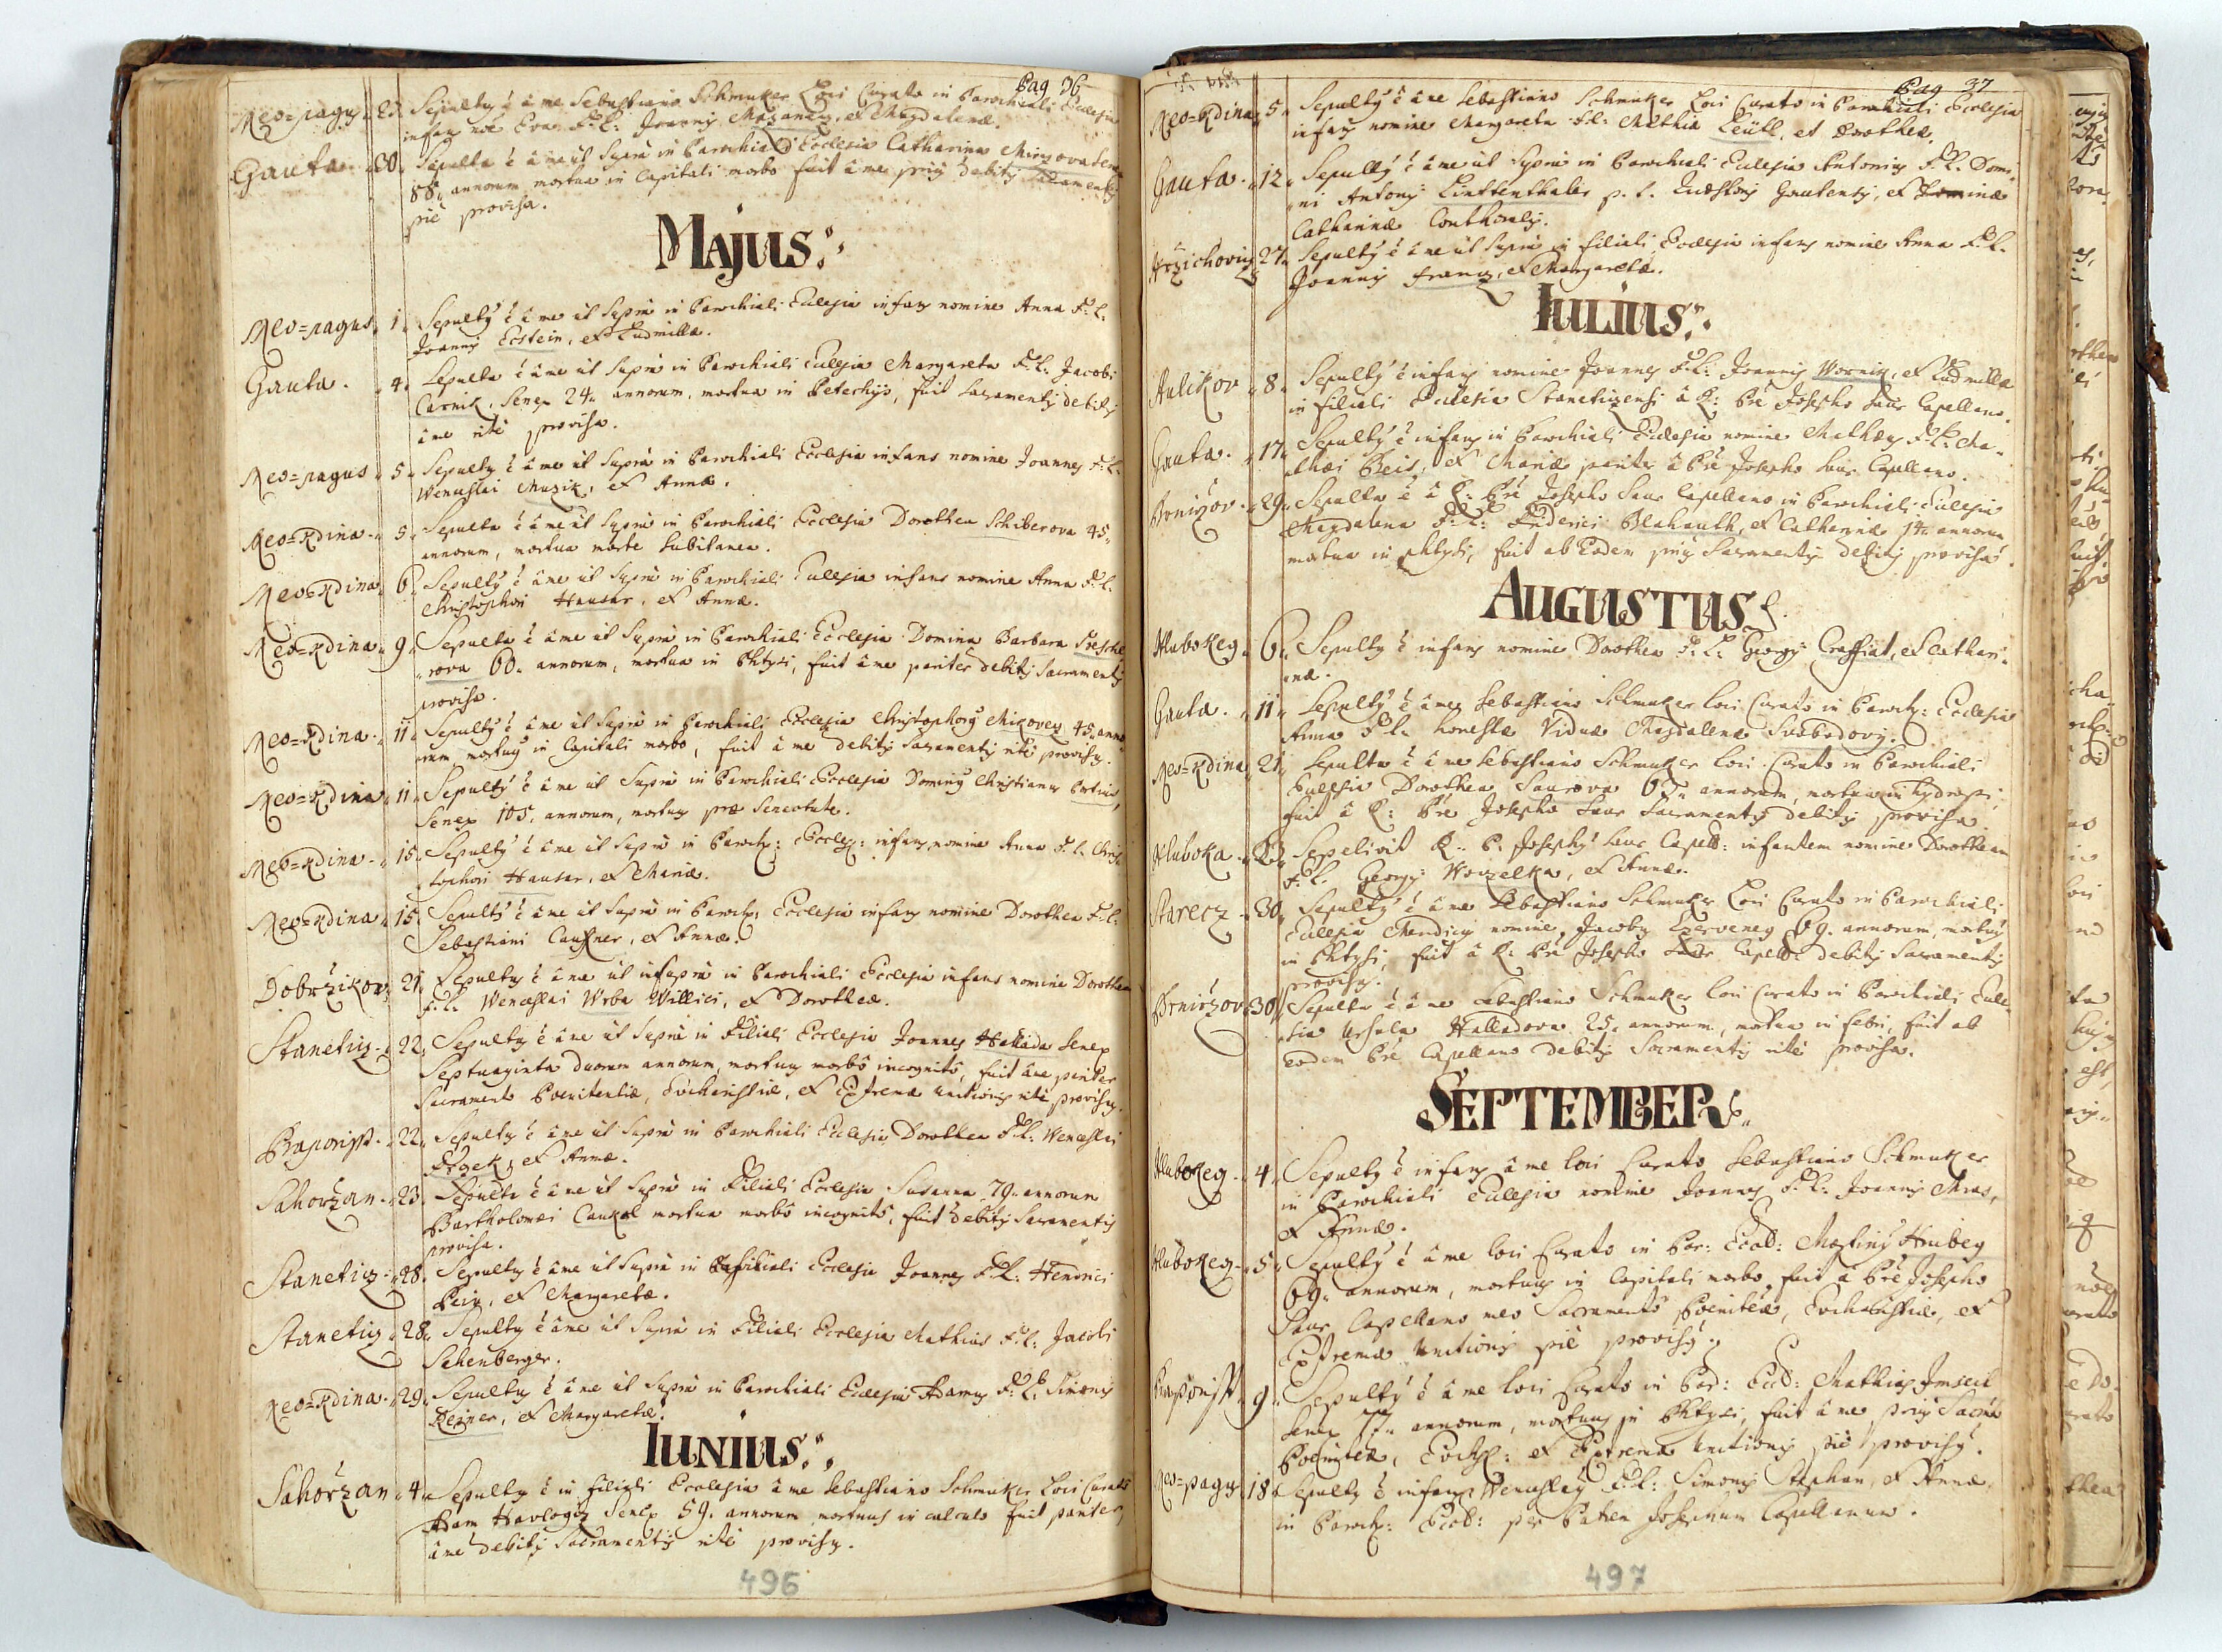 Pag 36
Neo=pagus 23. Sepultus ē à me Sebastiano Schmuker Loci Curato in Parochiali Ecclesia
infans nōe Eva F. L: Joannis, et Magdalenæ.
Gauta. 30. Sepulta ē à me ut supra in Parochiali Ecclesia Catharina
88. annorum mortua in Capitali morbo fuit à me priùs debitis Sacramentis
piè provisa.
MAJUS.
Neo=pagus. 1. Sepultus ē à me ut supra in Parochiali Ecclesia infans nomine Anna F. L.
Joannis Eckstein, et Ludmillæ.
Gauta. 4. Sepulta ē à me ut supra in Parochiali Ecclesia Margareta F. L: Jacobi
Carnik, Senex 24. annorum, mortua in Petechijs, fuit Sacramentis debitis
à me ritè provisa.
Neo=pagus 5. Sepultus ē à me ut supra in Parochiali Ecclesia infans nomine Joannes F. L.
Wenceslai Muzik, et Annæ.
Neo=Kdina. 5. Sepulta ē à me ut supra in Parochiali Ecclesia Dorothea Schiberova 45.
annorum, mortua morte subitanea.
Neo=Kdina. 6. Sepultus ē à me ut supra in Parochiali Ecclesia infans nomine Anna F. L.
Christophori Hausar, et Annæ.
Neo=Kdina. 9. Sepulta ē à me ut supra in Parochiali Ecclesia Domina Barbara
rova 60. annorum, mortua in Phtysi, fuit à me pariter debitis Sacramentis
provisa.
Neo=Kdina. 11. Sepultus ē à me ut supra in Parochiali Ecclesia Christophorus Mikovex 45. anno=
rum mortuus in Capitali morbo, fuit à me debitis Sacramentis ritè provisus.
Neo=Kdina. 11. Sepultus ē à me ut supra in Parochiali Ecclesia Dominus Christianus
Senex 105. annorum, mortuus præ Senectute.
Neo=Kdina. 15. Sepultus ē à me ut supra in Paroch: Eccles: infans nomine Anna F. L. Chris
tophori Hausar, et Mariæ.
Neo=Kdina. 15. Sepultus ē à me ut supra in Paroch: Ecclesia infans nomine Dorothea F. L:
Sebastiani, et Annæ.
Dobržikov. 21. Sepultus ē à me ut supra in Parochiali Ecclesia infans nomine Dorothea
F. L. Wenceslai Wrba Willici, et Dorotheæ.
Stanetiz. 22. Sepultus ē à me ut supra in Filiali Ecclesia Joannes Hallada Senex
Septuaginta duorum annorum, mortuus morbô incognitô, fuit à me pariter
Sacramento Pœnitentiæ, Eucharistiæ, et Extremæ Unctionis ritè provisus.
22. Sepultus ē à me ut supra in Parochiali Ecclesia Dorothea F. L: Wenceslai
et Annæ.
Sahoržan. 23. Sepulta ē à me ut supra in Filiali Ecclesia Susanna 79. annorum
Bartholomæi mortua morbô incognitô, fuit debitis Sacramentis
provisa.
Stanetiz. 28. Sepultus ē à me ut supra in Filiali Ecclesia Joannes F. L: Henrici
et Margaretæ.
Stanetiz. 28. Sepultus ē à me ut supra in Filiali Ecclesia Mathias F. L: Jacobi
Schenberger.
Neo=Kdina. 29. Sepultus ē à me ut supra in Parochiali Ecclesia Adamus F. L. Simonis
et Margaretæ.
IUNIUS.
Sahoržan. 4. Sepultus ē in filiali Ecclesia à me Sebastiano Schmuker Loci Curato
Adam Senex 59. annorum mortuus in calculo fuit pariter
à me debitis Sacramentis ritè provisus.
496
Pag 37
Neo=Kdina 5. Sepultus ē à me Sebastiano Schmuker Loci Curato in Parochiali Ecclesia
infans nomine Margareta F. L: Mathiæ, et Dorotheæ.
Gauta. 12. Sepultus ē à me ut supra in Parochiali Ecclesia Antonius F. L. Domi=
ni Antonij Lintenthaler p. t. Quæstoris Gautensis, et Dominæ
Catharinæ
27. Sepultus ē à me ut supra in filiali Ecclesia infans nomine Anna F. L.
Joannis Franz, et Margaretæ.
IULIUS.
Aulikov 8. Sepultus ē infans nomine Joannes F. L. Joannis, et Ludmillæ
in filiali Ecclesia Stanetizensi à R: Prē Josepho Saur Capellano.
Gauta. 17. Sepultus ē infans in Parochiali Ecclesia nomine Mathæus F. L. Ma=
thæi Beis, et Mariæ pariter à Prē Josepho Saur Capellano.
29. Sepulta ē à R: Prē Josepho Saur Capellano in Parochiali Ecclesia
Magdalena F. L: Friderici Blahauth, et Catharinæ 14. annorum
mortua in phtysi, fuit ab eodem priùs Sacramentis debitis provisa.
AUGUSTUS.
Hlubokeg. 6. Sepultus ē infans nomine Dorothea F. L. Georgij, et Cathari=
næ.
Gauta. 11. Sepultus ē à me Sebastiano Schmuker loci Curato in Paroch: Ecclesia
Anna F. L. honestæ Viduæ Magdalenæ Swobodovis.
Neo=Kdina 21. Sepulta ē à me Sebastiano Schmuker loci Curato in Parochiali
Ecclesia Dorothea Saurova 65. annorum, mortua in hydropi,
fuit à R: Prē Josepho Saur Sacramentis debitis provisa
Hluboka. 23. Sepelivit R. P. Josephus Saur Capell: infantem nomine Dorotheam
F. L. Georgij Wovzelka, et Annæ.
Starecz. 30. Sepultus ē à me Sebastiano Schmuker Loci Curato in Parochiali
Ecclesia Mendicus nomine Jacobus Czerveney 69. annorum, mortuus
in Phtysi, fuit à R: Prē Josepho Saur Capell: debitis Sacramentis
provisus.
30. Sepulta ē à me Sebastiano Schmuker loci Curato in Parochiali Eccle=
sia Ursula Halladova 25. annorum, mortua in febri, fuit ab
eodem Prē Capellano debitis Sacramentis ritè provisa.
SEPTEMBER.
Hlubokeg. 4. Sepultus ē infans à me loci Curato Sebastiano Schmuker
in Parochiali Ecclesia nomine Joannes F. L: Joannis Mras,
et Annæ.
Hlubokeg. 5. Sepultus ē à me loci Curato in Par: Eccl: Martinus Hrubey
69. annorum, mortuus in Capitali morbo, fuit à Prē Josepho
Saur Capellano meo Sacramentô Pœnitēæ, Eucharistiæ, et
Extremæ Unctionis piè provisus.
9. Sepultus ē à me loci Curato in Par: Eccl: Mathias
Senex 77. annorum, mortuus in Phtysi, fuit à me priùs
Pœnitēæ, Euch: et Extremæ Unctionis piè provisus.
Neo=pagus 18. Sepultus ē infans Wenceslaus F. L: Simonis Stephan, et Annæ
in Paroch: Eccl: per Patrem Josephum Capellanum.
497